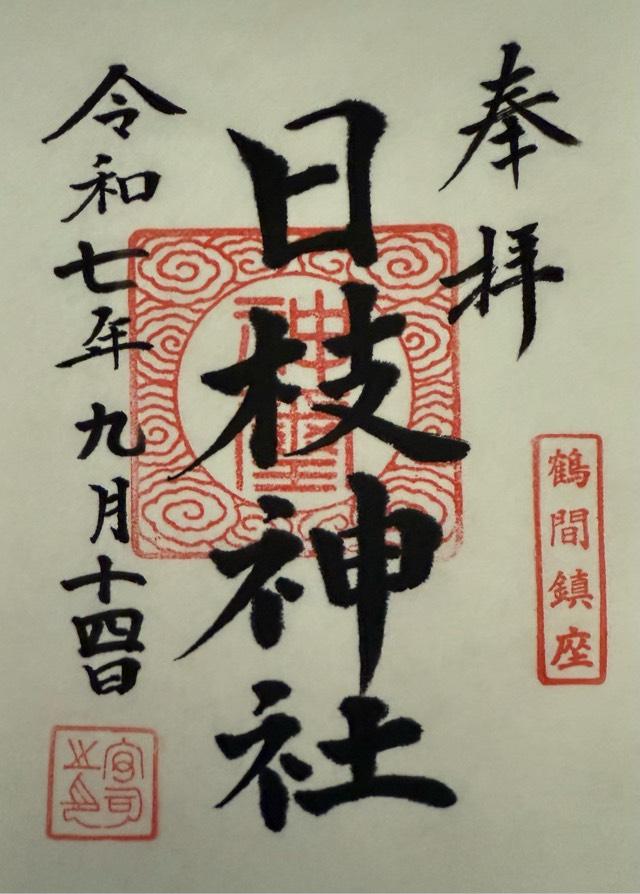 奉拝
鶴間鎮座
日枝神社
神璽
令和七年九月十四日
宮司之印